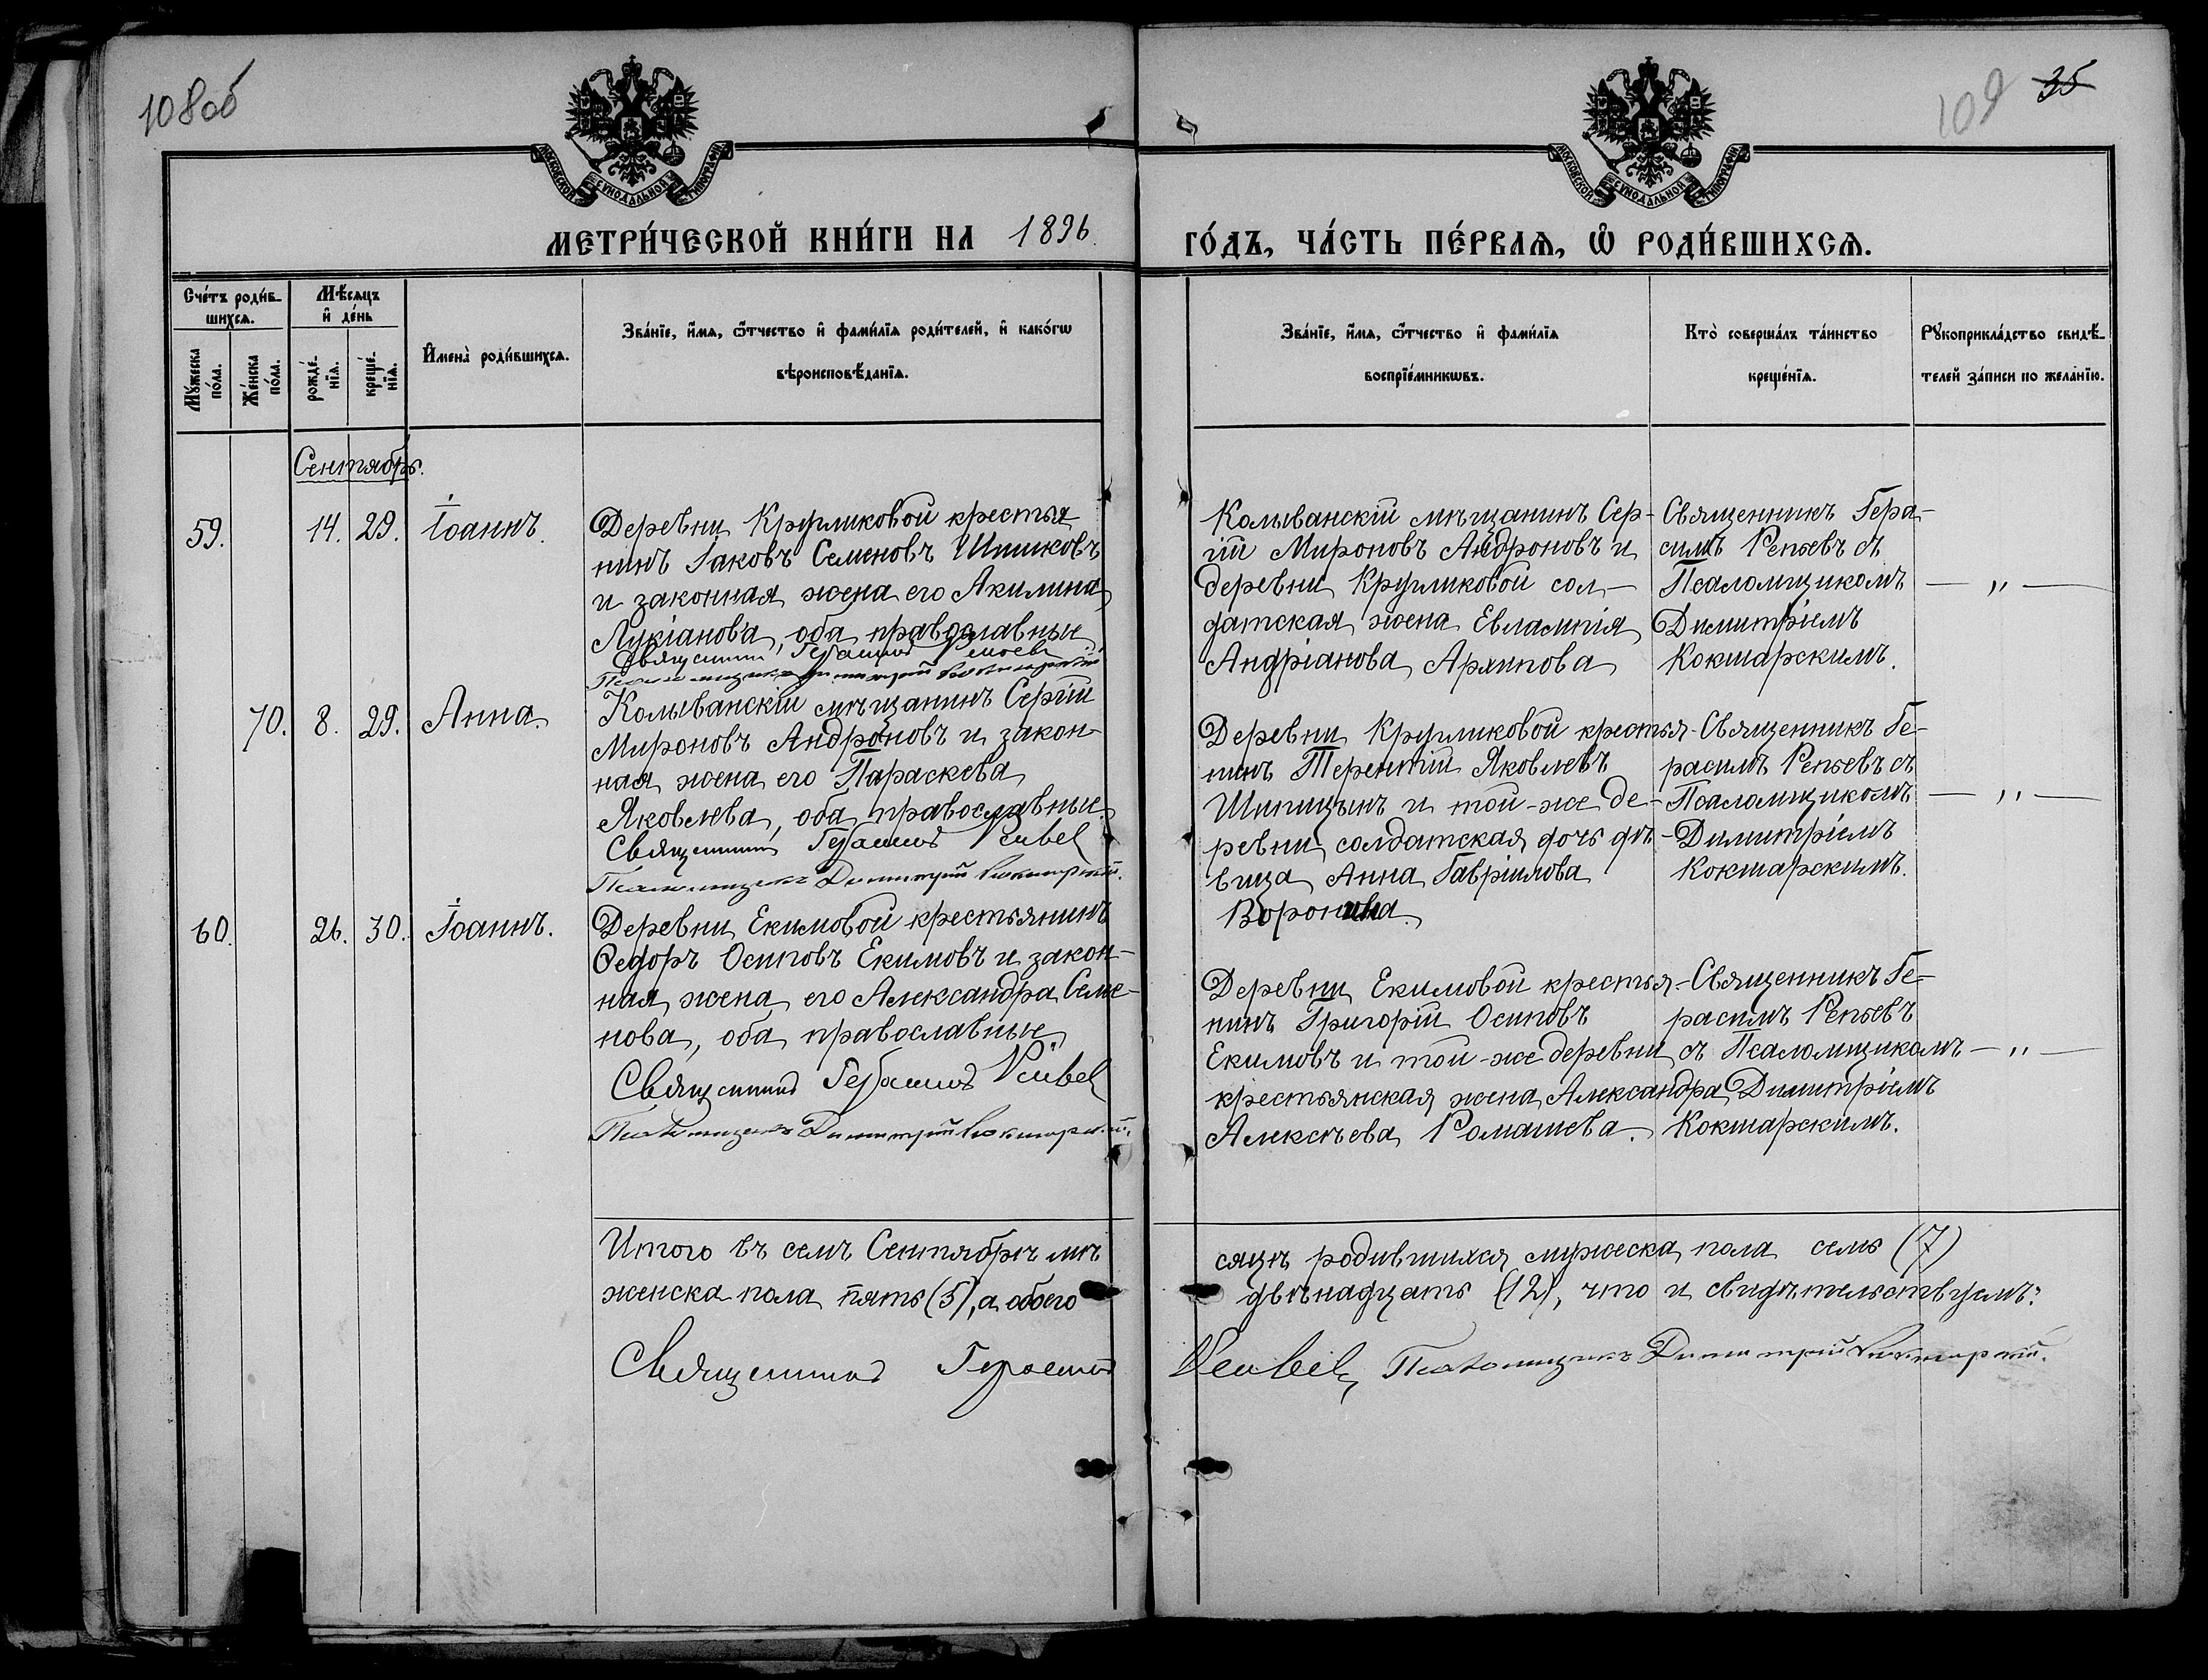 108об
109 35
МОСКОВСКОЙ СѴНОДАЛЬНОЙ ТИПОГРАФІИ
МОСКОВСКОЙ СѴНОДАЛЬНОЙ ТИПОГРАФІИ
МЕТРИ́ЧЕСКОЙ КНИ́ГИ НА 1896.
ГО́ДЪ, ЧА́СТЬ ПЕ́РВАѦ, Ѡ РОДИ́ВШИХСѦ.
Сче́тъ роди́в-
шихсѧ.
Мѣ́сѧцъ
и҆ де́нь
Мꙋ́жеска
по́ла.
Же́нска
по́ла.
рожде́-
нїѧ.
креще́-
нїѧ.
И҆мена̀ роди́вшихсѧ.
Зва́нїе, и҆́мѧ, ѻ҆́тчество и҆ фами́лїѧ роди́телей, и҆ како́гѡ
вѣроисповѣ́данїѧ.
Зва́нїе, и҆́мѧ, ѻ҆́тчество и҆ фами́лїѧ
воспрїе́мникѡвъ.
Кто̀ соверша́лъ та́инство
креще́нїѧ.
Рꙋкоприкла́дство свидѣ́-
телей за́писи по жела́нїю.
Сентябрь.
59. 14. 29. Іоаннъ.
Деревни Кругликовой крестья
нинъ Іаковъ Семеновъ Шишковъ
и законная жена его Акилина
Лукіанова, оба православные
Священникъ Герасимъ Репьевъ
Псаломщикъ Димитрій Кокшарскій
Колыванскій мѣщанинъ Сер-
гій Мироновъ Андроновъ и
деревни Кругликовой сол-
датская жена Евлампія
Андріанова Архипова
Священникъ Гера-
симъ Репьевъ съ
Псаломщикомъ
Димитріемъ
Кокшарскимъ.
— " —
70. 8. 29. Анна.
Колыванскій мѣщанинъ Сергій
Мироновъ Андроновъ и закон-
ная жена его Параскева
Яковлева, оба православные.
Священникъ Герасимъ Репьевъ
Псаломщикъ Димитрій Кокшарскій.
Деревни Кругликовой крестья-
нинъ Терентій Яковлевъ
Шипицынъ и той-же де-
ревни солдатская дочь дѣ-
вица Анна Гавріилова
Воронина.
Священникъ Ге-
расимъ Репьевъ съ
Псаломщикомъ
Димитріемъ
Кокшарскимъ.
— " —
60. 26. 30. Іоаннъ.
Деревни Екимовой крестьянинъ
Ѳедоръ Осиповъ Екимовъ и закон-
ная жена его Александра Семе-
нова, оба православные.
Священникъ Герасимъ Репьевъ
Псаломщикъ Димитрій Кокшарскій.
Деревни Екимовой крестья-
нинъ Григорій Осиповъ
Екимовъ и той-же деревни
крестьянская жена Александра
Алексѣева Ромашева.
Священникъ Ге-
расимъ Репьевъ
съ Псаломщикомъ
Димитріемъ
Кокшарскимъ.
— " —
Итого въ семъ Сентябрѣ мѣ
сяцѣ родившихся мужеска пола семь (7)
женска пола пять (5), а обоего
двѣнадцать (12), что и свидѣтельствуемъ:
Священникъ Герасимъ
Репьевъ, Псаломщикъ Димитрій Кокшарскій.